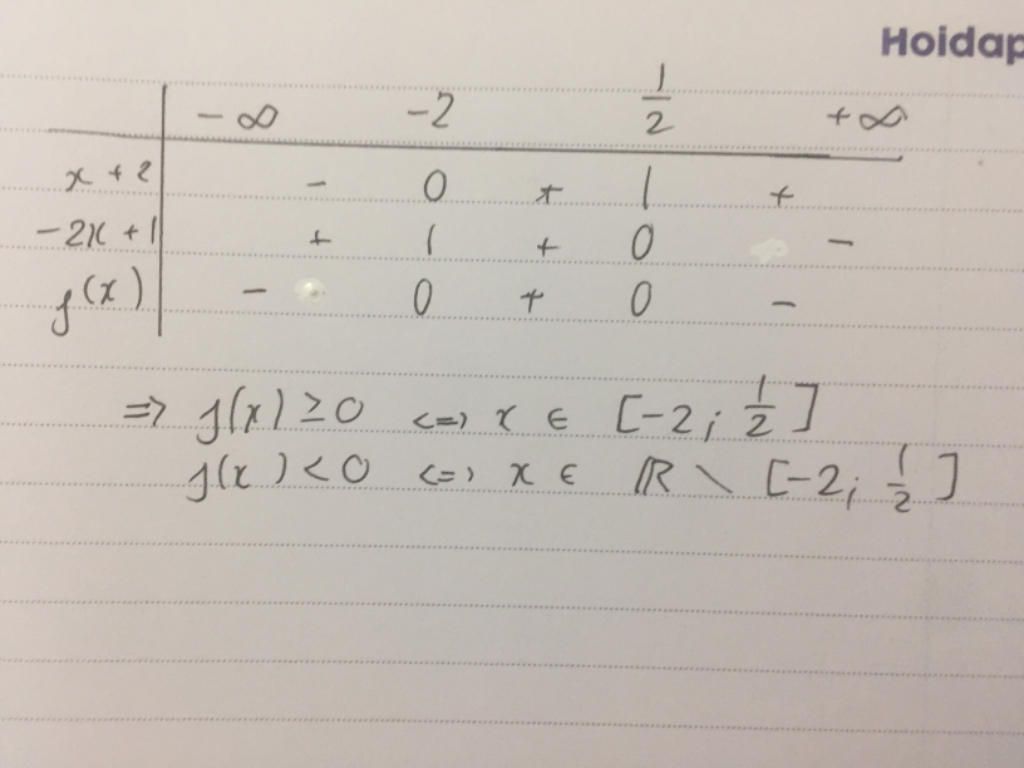 Hoidap
-∞ -2 1/2 +∞
x + 2 - 0 + | +
-2x + 1 + | + 0 -
f(x) - 0 + 0 -
=> f(x) ≥ 0 <=> x ∈ [-2; 1/2]
f(x) < 0 <=> x ∈ ℝ \ [-2; 1/2]